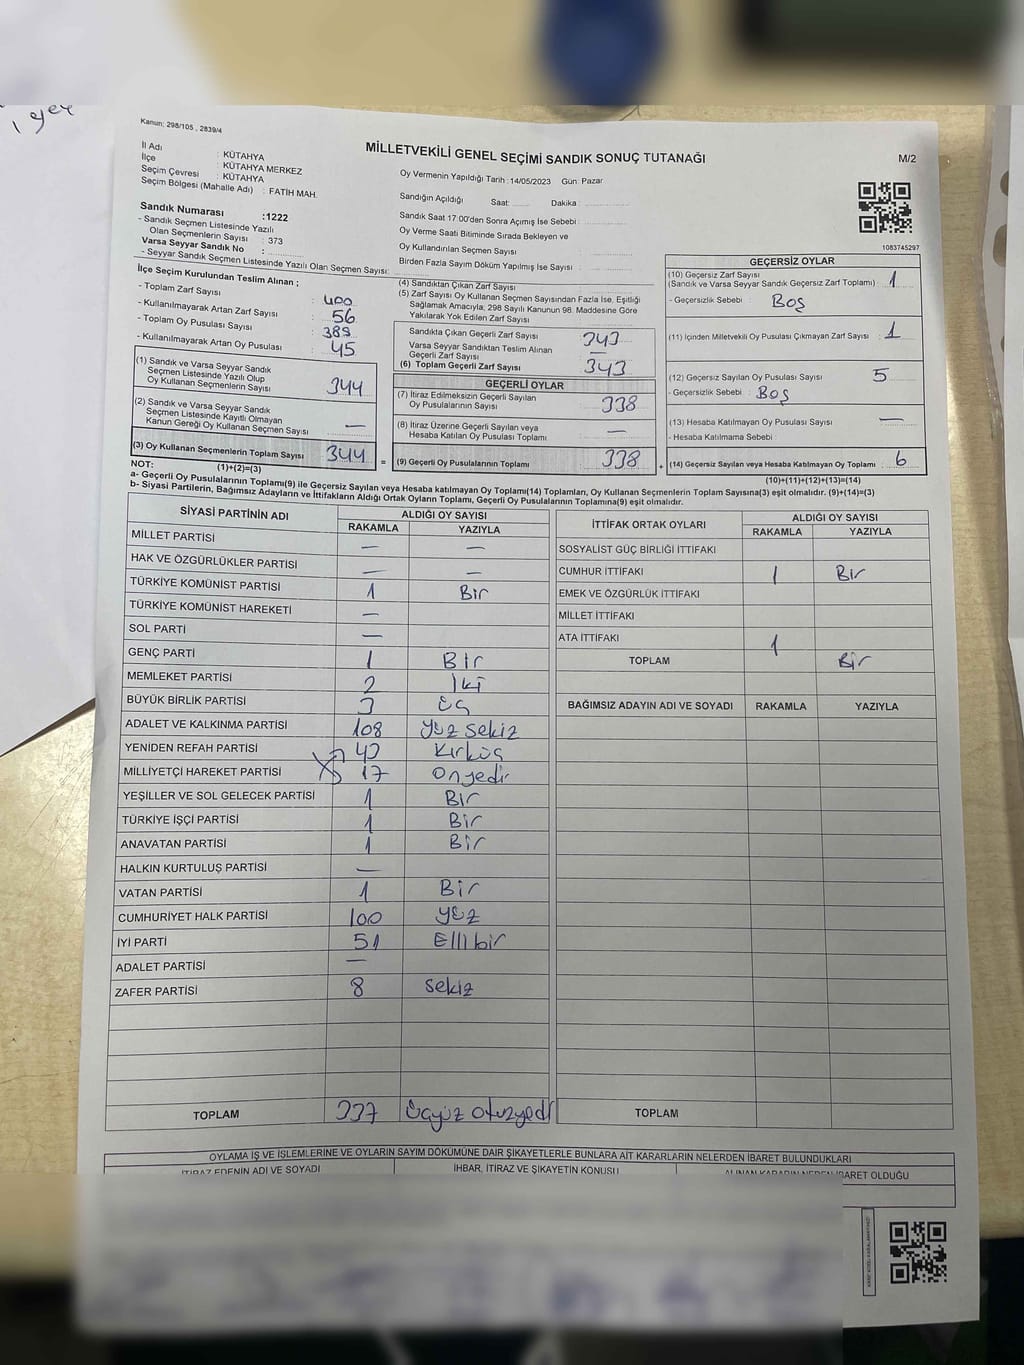 yer
Kanun: 298/105 , 2839/4
MİLLETVEKİLİ GENEL SEÇİMİ SANDIK SONUÇ TUTANAĞI
M/2
İl Adı : KÜTAHYA
İlçe : KÜTAHYA MERKEZ
Seçim Çevresi : KÜTAHYA
Seçim Bölgesi (Mahalle Adı) : FATİH MAH.
Sandık Numarası :1222
- Sandık Seçmen Listesinde Yazılı
Olan Seçmenlerin Sayısı : 373
Varsa Seyyar Sandık No :
- Seyyar Sandık Seçmen Listesinde Yazılı Olan Seçmen Sayısı:
Oy Vermenin Yapıldığı Tarih :14/05/2023 Gün: Pazar
Sandığın Açıldığı Saat: Dakika :
Sandık Saat 17:00'den Sonra Açımış İse Sebebi :
Oy Verme Saati Bitiminde Sırada Bekleyen ve
Oy Kullandırılan Seçmen Sayısı :
Birden Fazla Sayım Döküm Yapılmış İse Sayısı :
1083745297
İlçe Seçim Kurulundan Teslim Alınan ;
- Toplam Zarf Sayısı : 400
- Kullanılmayarak Artan Zarf Sayısı : 56
- Toplam Oy Pusulası Sayısı : 389
- Kullanılmayarak Artan Oy Pusulası : 45
(1) Sandık ve Varsa Seyyar Sandık
Seçmen Listesinde Yazılı Olup
Oy Kullanan Seçmenlerin Sayısı : 344
(2) Sandık ve Varsa Seyyar Sandık
Seçmen Listesinde Kayıtlı Olmayan
Kanun Gereği Oy Kullanan Seçmen Sayısı : —
(3) Oy Kullanan Seçmenlerin Toplam Sayısı : 344
(1)+(2)=(3)
(4) Sandıktan Çıkan Zarf Sayısı :
(5) Zarf Sayısı Oy Kullanan Seçmen Sayısından Fazla İse, Eşitliği
Sağlamak Amacıyla; 298 Sayılı Kanunun 98. Maddesine Göre
Yakılarak Yok Edilen Zarf Sayısı :
Sandıkta Çıkan Geçerli Zarf Sayısı : 343
Varsa Seyyar Sandıktan Teslim Alınan
Geçerli Zarf Sayısı : —
(6) Toplam Geçerli Zarf Sayısı : 343
=
GEÇERLİ OYLAR
(7) İtiraz Edilmeksizin Geçerli Sayılan
Oy Pusulalarının Sayısı : 338
(8) İtiraz Üzerine Geçerli Sayılan veya
Hesaba Katılan Oy Pusulası Toplamı : —
(9) Geçerli Oy Pusulalarının Toplamı : 338
+
GEÇERSİZ OYLAR
(10) Geçersiz Zarf Sayısı
(Sandık ve Varsa Seyyar Sandık Geçersiz Zarf Toplamı) : 1
- Geçersizlik Sebebi : Boş
(11) İçinden Milletvekili Oy Pusulası Çıkmayan Zarf Sayısı : 1
(12) Geçersiz Sayılan Oy Pusulası Sayısı : 5
- Geçersizlik Sebebi : Boş
(13) Hesaba Katılmayan Oy Pusulası Sayısı : —
- Hesaba Katılmama Sebebi :
(14) Geçersiz Sayılan veya Hesaba Katılmayan Oy Toplamı : 6
(10)+(11)+(12)+(13)=(14)
NOT:
a- Geçerli Oy Pusulalarının Toplamı(9) ile Geçersiz Sayılan veya Hesaba katılmayan Oy Toplamı(14) Toplamları, Oy Kullanan Seçmenlerin Toplam Sayısına(3) eşit olmalıdır. (9)+(14)=(3)
b- Siyasi Partilerin, Bağımsız Adayların ve İttifakların Aldığı Ortak Oyların Toplamı, Geçerli Oy Pusulalarının Toplamına(9) eşit olmalıdır.
SİYASİ PARTİNİN ADI ALDIĞI OY SAYISI
RAKAMLA YAZIYLA
MİLLET PARTİSİ — —
HAK VE ÖZGÜRLÜKLER PARTİSİ — —
TÜRKİYE KOMÜNİST PARTİSİ 1 Bir
TÜRKİYE KOMÜNİST HAREKETİ —
SOL PARTİ —
GENÇ PARTİ 1 Bir
MEMLEKET PARTİSİ 2 İki
BÜYÜK BİRLİK PARTİSİ 3 Üç
ADALET VE KALKINMA PARTİSİ 108 Yüz sekiz
YENİDEN REFAH PARTİSİ 43 Kırküç
MİLLİYETÇİ HAREKET PARTİSİ 17 Onyedi
YEŞİLLER VE SOL GELECEK PARTİSİ 1 Bir
TÜRKİYE İŞÇİ PARTİSİ 1 Bir
ANAVATAN PARTİSİ 1 Bir
HALKIN KURTULUŞ PARTİSİ —
VATAN PARTİSİ 1 Bir
CUMHURİYET HALK PARTİSİ 100 Yüz
İYİ PARTİ 51 Ellibir
ADALET PARTİSİ —
ZAFER PARTİSİ 8 Sekiz
TOPLAM 337 Üçyüz otuzyedi
İTTİFAK ORTAK OYLARI ALDIĞI OY SAYISI
RAKAMLA YAZIYLA
SOSYALİST GÜÇ BİRLİĞİ İTTİFAKI
CUMHUR İTTİFAKI 1 Bir
EMEK VE ÖZGÜRLÜK İTTİFAKI
MİLLET İTTİFAKI
ATA İTTİFAKI
TOPLAM 1 Bir
BAĞIMSIZ ADAYIN ADI VE SOYADI RAKAMLA YAZIYLA
TOPLAM
OYLAMA İŞ VE İŞLEMLERİNE VE OYLARIN SAYIM DÖKÜMÜNE DAİR ŞİKAYETLERLE BUNLARA AİT KARARLARIN NELERDEN İBARET BULUNDUKLARI
İTİRAZ EDENİN ADI VE SOYADI İHBAR, İTİRAZ VE ŞİKAYETİN KONUSU ALINAN KARARIN NEDEN İBARET OLDUĞU